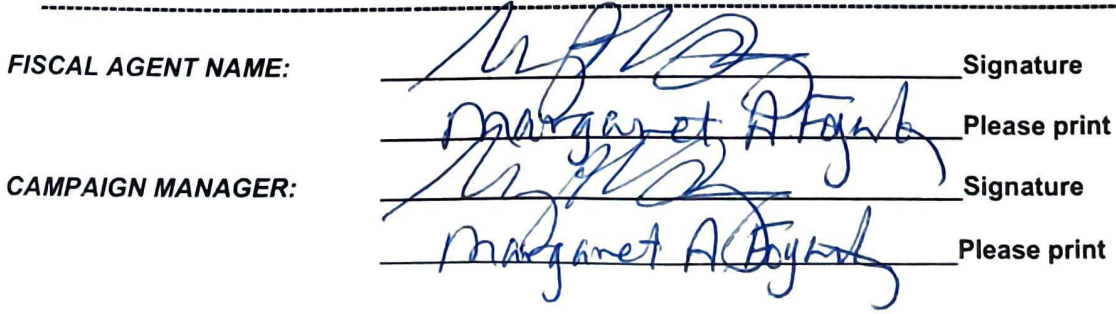 FISCAL AGENT NAME: Signature
Margaret A Please print
CAMPAIGN MANAGER: Signature
Margaret A Please print